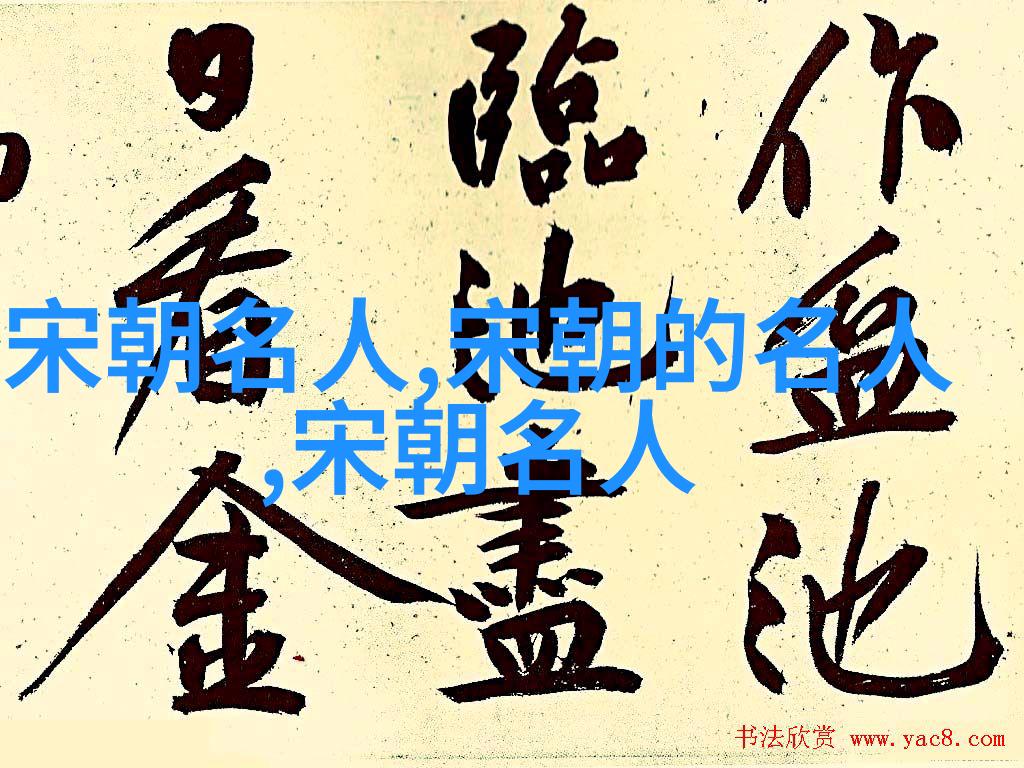 作盆池
臨池盡
日看金
宋朝名人,宋朝的名人
,宋朝名人
书法欣赏 www.yac8.com